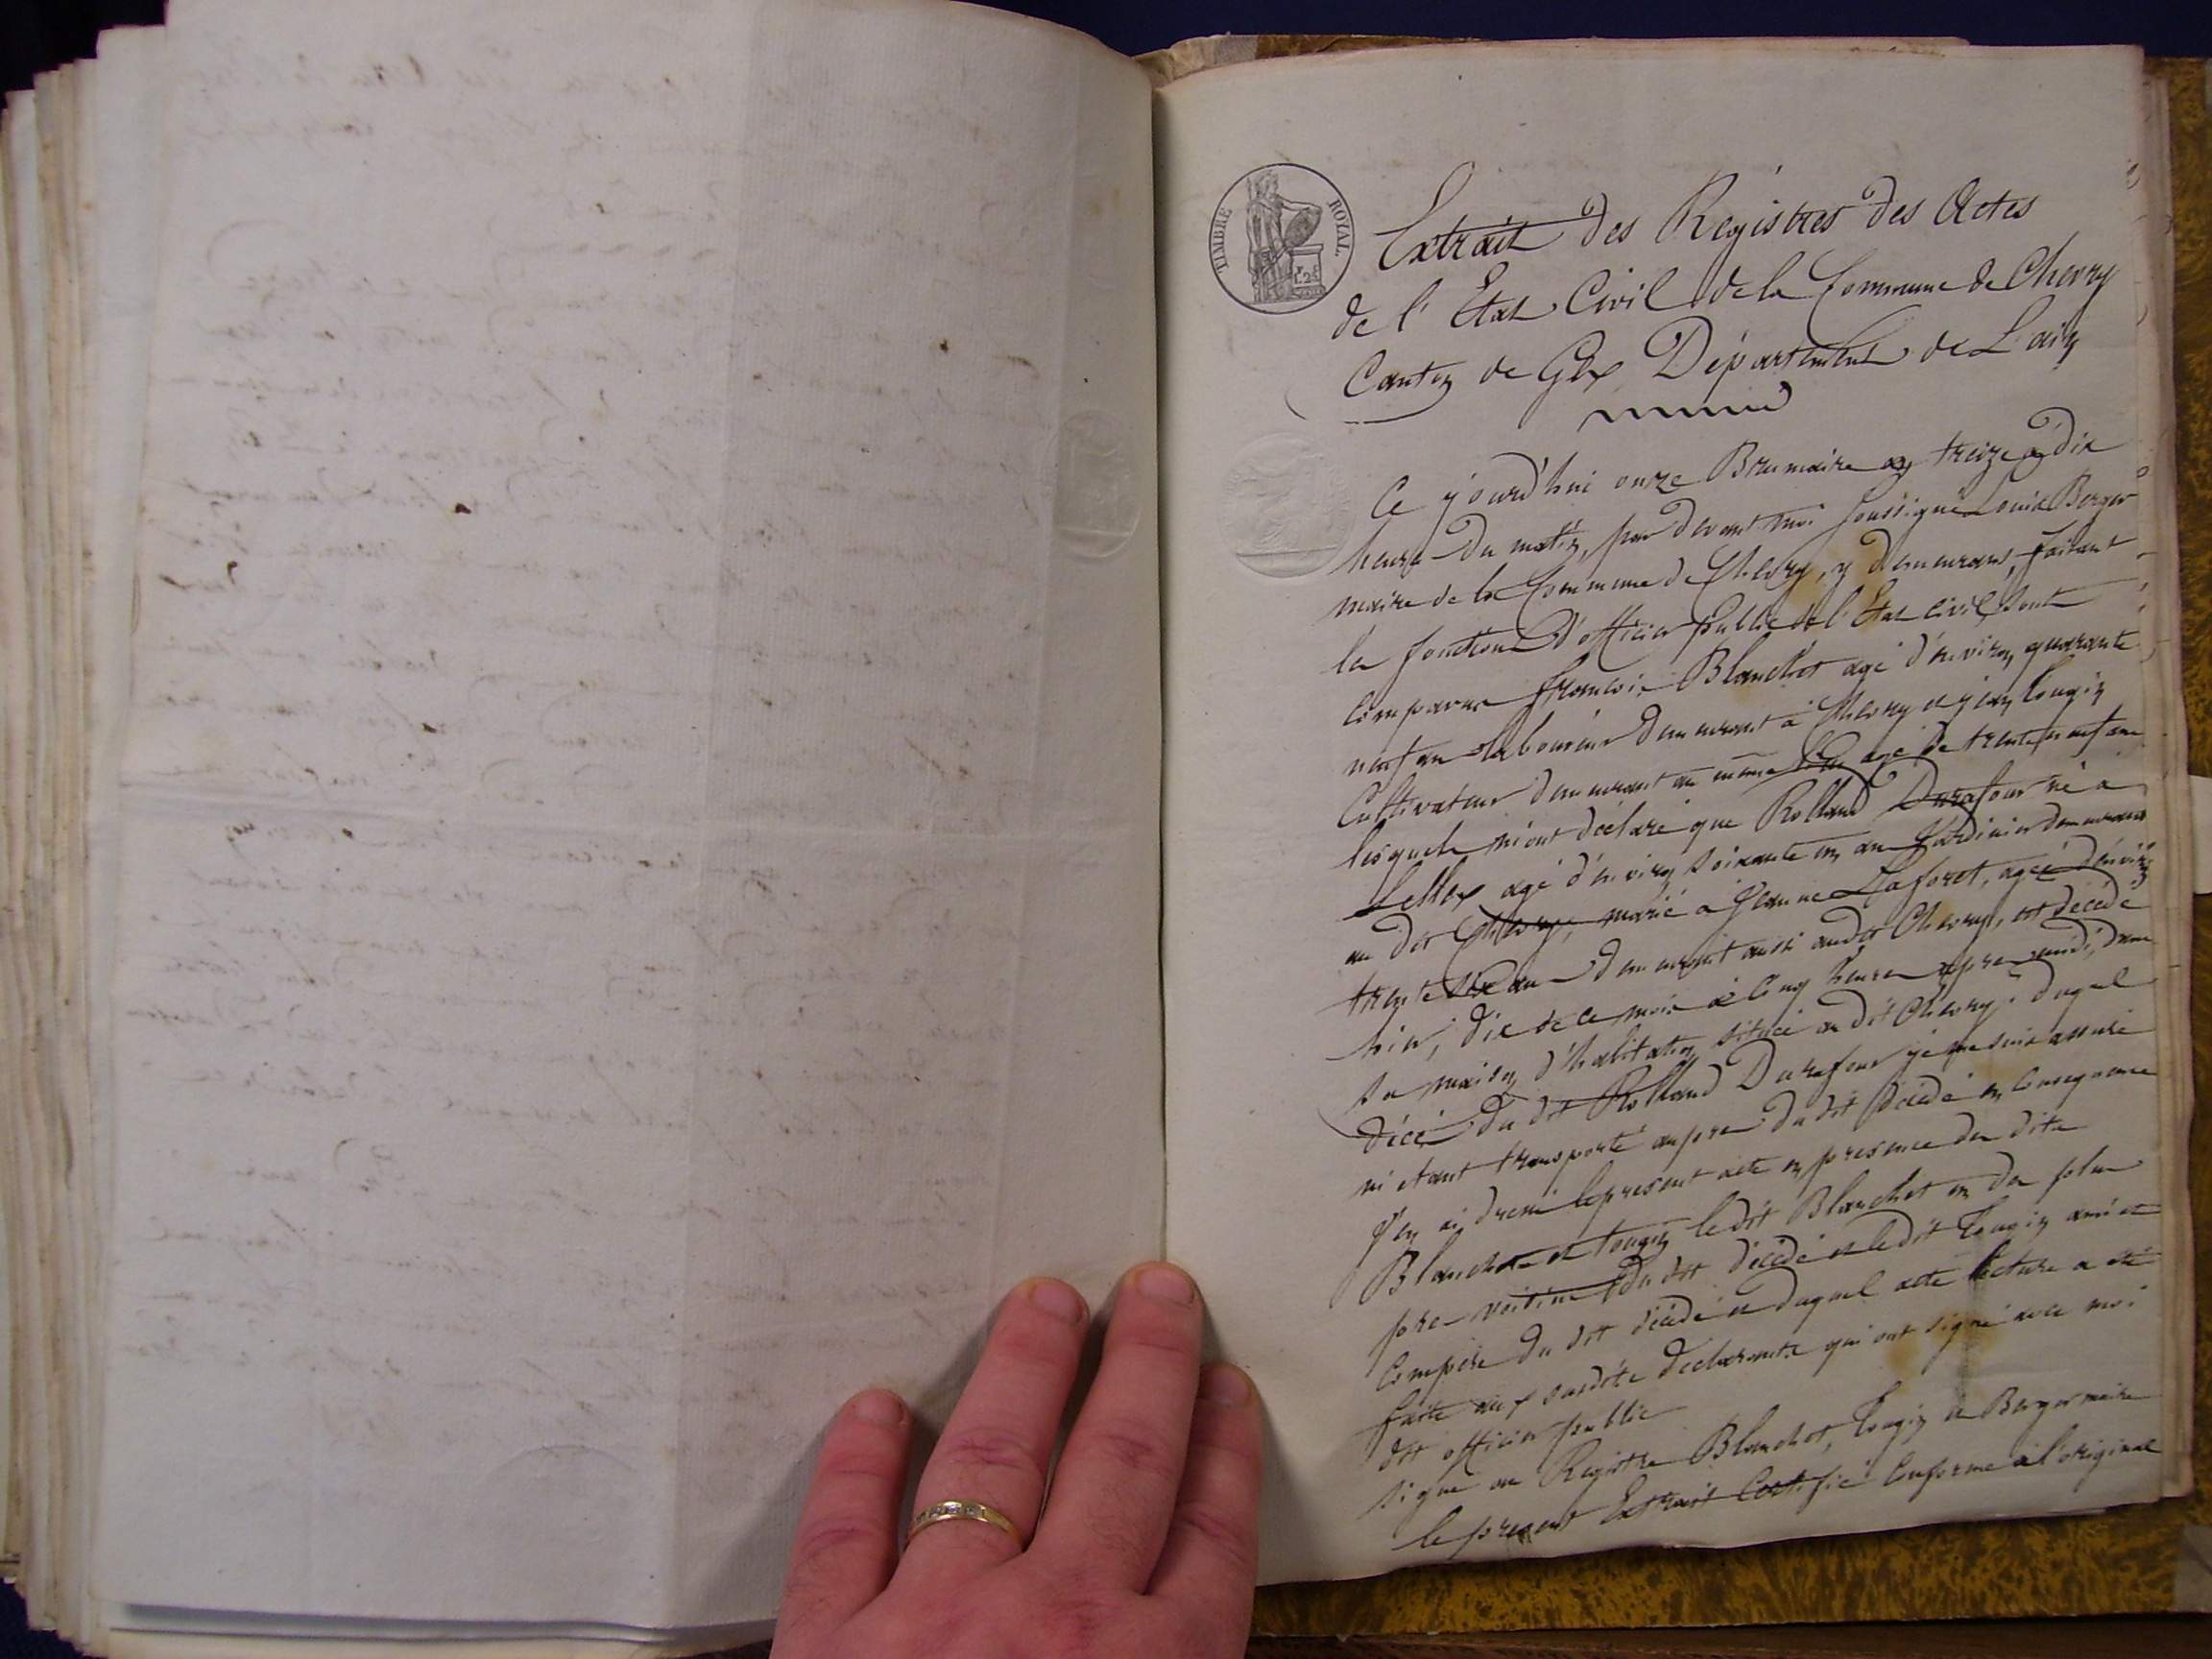 TIMBRE ROYAL
Extrait des Registres des Actes
de l'Etat Civil de la Commune de Chevry
Canton de Gex Département de L'ain
Ce y ourd'hui onze Brumaire an treize a dix
heures du matin, par devant moi soussigné Louis Berger
maire de la Commune de Chevry, y demeurant, faisant
les fonctions d'officier public de l'Etat civil sont
comparus françois Blanchet agé d'environ quarante
neuf ans laboureur demeurant à Chevry et jean Tougin
Cultivateur demeurant au même lieu agé de trente neuf ans
lesquels m'ont déclaré que Rolland Durafour né à
Lellex agé d'environ soixante un ans Jardinier demeurant
au dit Chevry, marié a Jeanne Laforet, agée d'environ
trente six ans demeurant aussi audit Chevry, est décédé
hier, dix de ce mois à cinq heures apres midi, dans
sa maison d'habitation située au dit Chevry. duquel
décé du dit Rolland Durafour je me suis assuré
m'etant transporté aupres du dit décédé en consequence
j'en ai dressé le present acte en presence des dits
Blanchet et Tougin le dit Blanchet un des plus
pres voisins du dit décédé et le dit Tougin ami et
compere du dit décédé et duquel acte lecture a été
faite aux susdits declarants qui ont signé avec moi
dit officier public
signé au Registre Blanchet, Tougin et Berger maire
le present Extrait Certifié Conforme à l'original